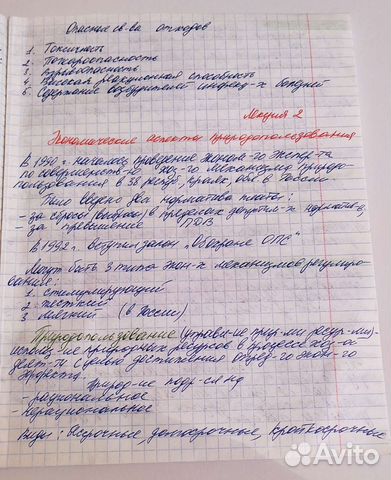 Опасные св-ва отходов
1. Токсичность
2. Пожароопасность
3. Взрывоопасность
4. Высокая реакционная способность
5. Содержание возбудителей инфекц-х болезней
Лекция 2
Экономические аспекты природопользования
В 1990 г. началось проведение эконом-го экспер-та
по совершенств-ю хоз-го механизма природо-
пользования в 38 респуб., краях, обл. в России
Было введено два норматива платы:
- за сбросы (выбросы) в пределах допустим-х норматив-в,
- за превышение ПДВ
В 1992 г. вступил закон "Об охране ОПС"
Могут быть 3 типа экон-х механизмов регулиро-
вание:
1. стимулирующий
2. жесткий
3. мягкий (в России)
Природопользование (управл-ие прир-ми ресур-ми) -
использ-ие природных ресурсов в процессе хоз-ой
деят-ти с целью достижения опред-го экон-го
эффекта.
Природ-ие подр-ся на
- рациональное
- нерациональное
Виды: бессрочные, долгосрочные, краткосрочные
Avito